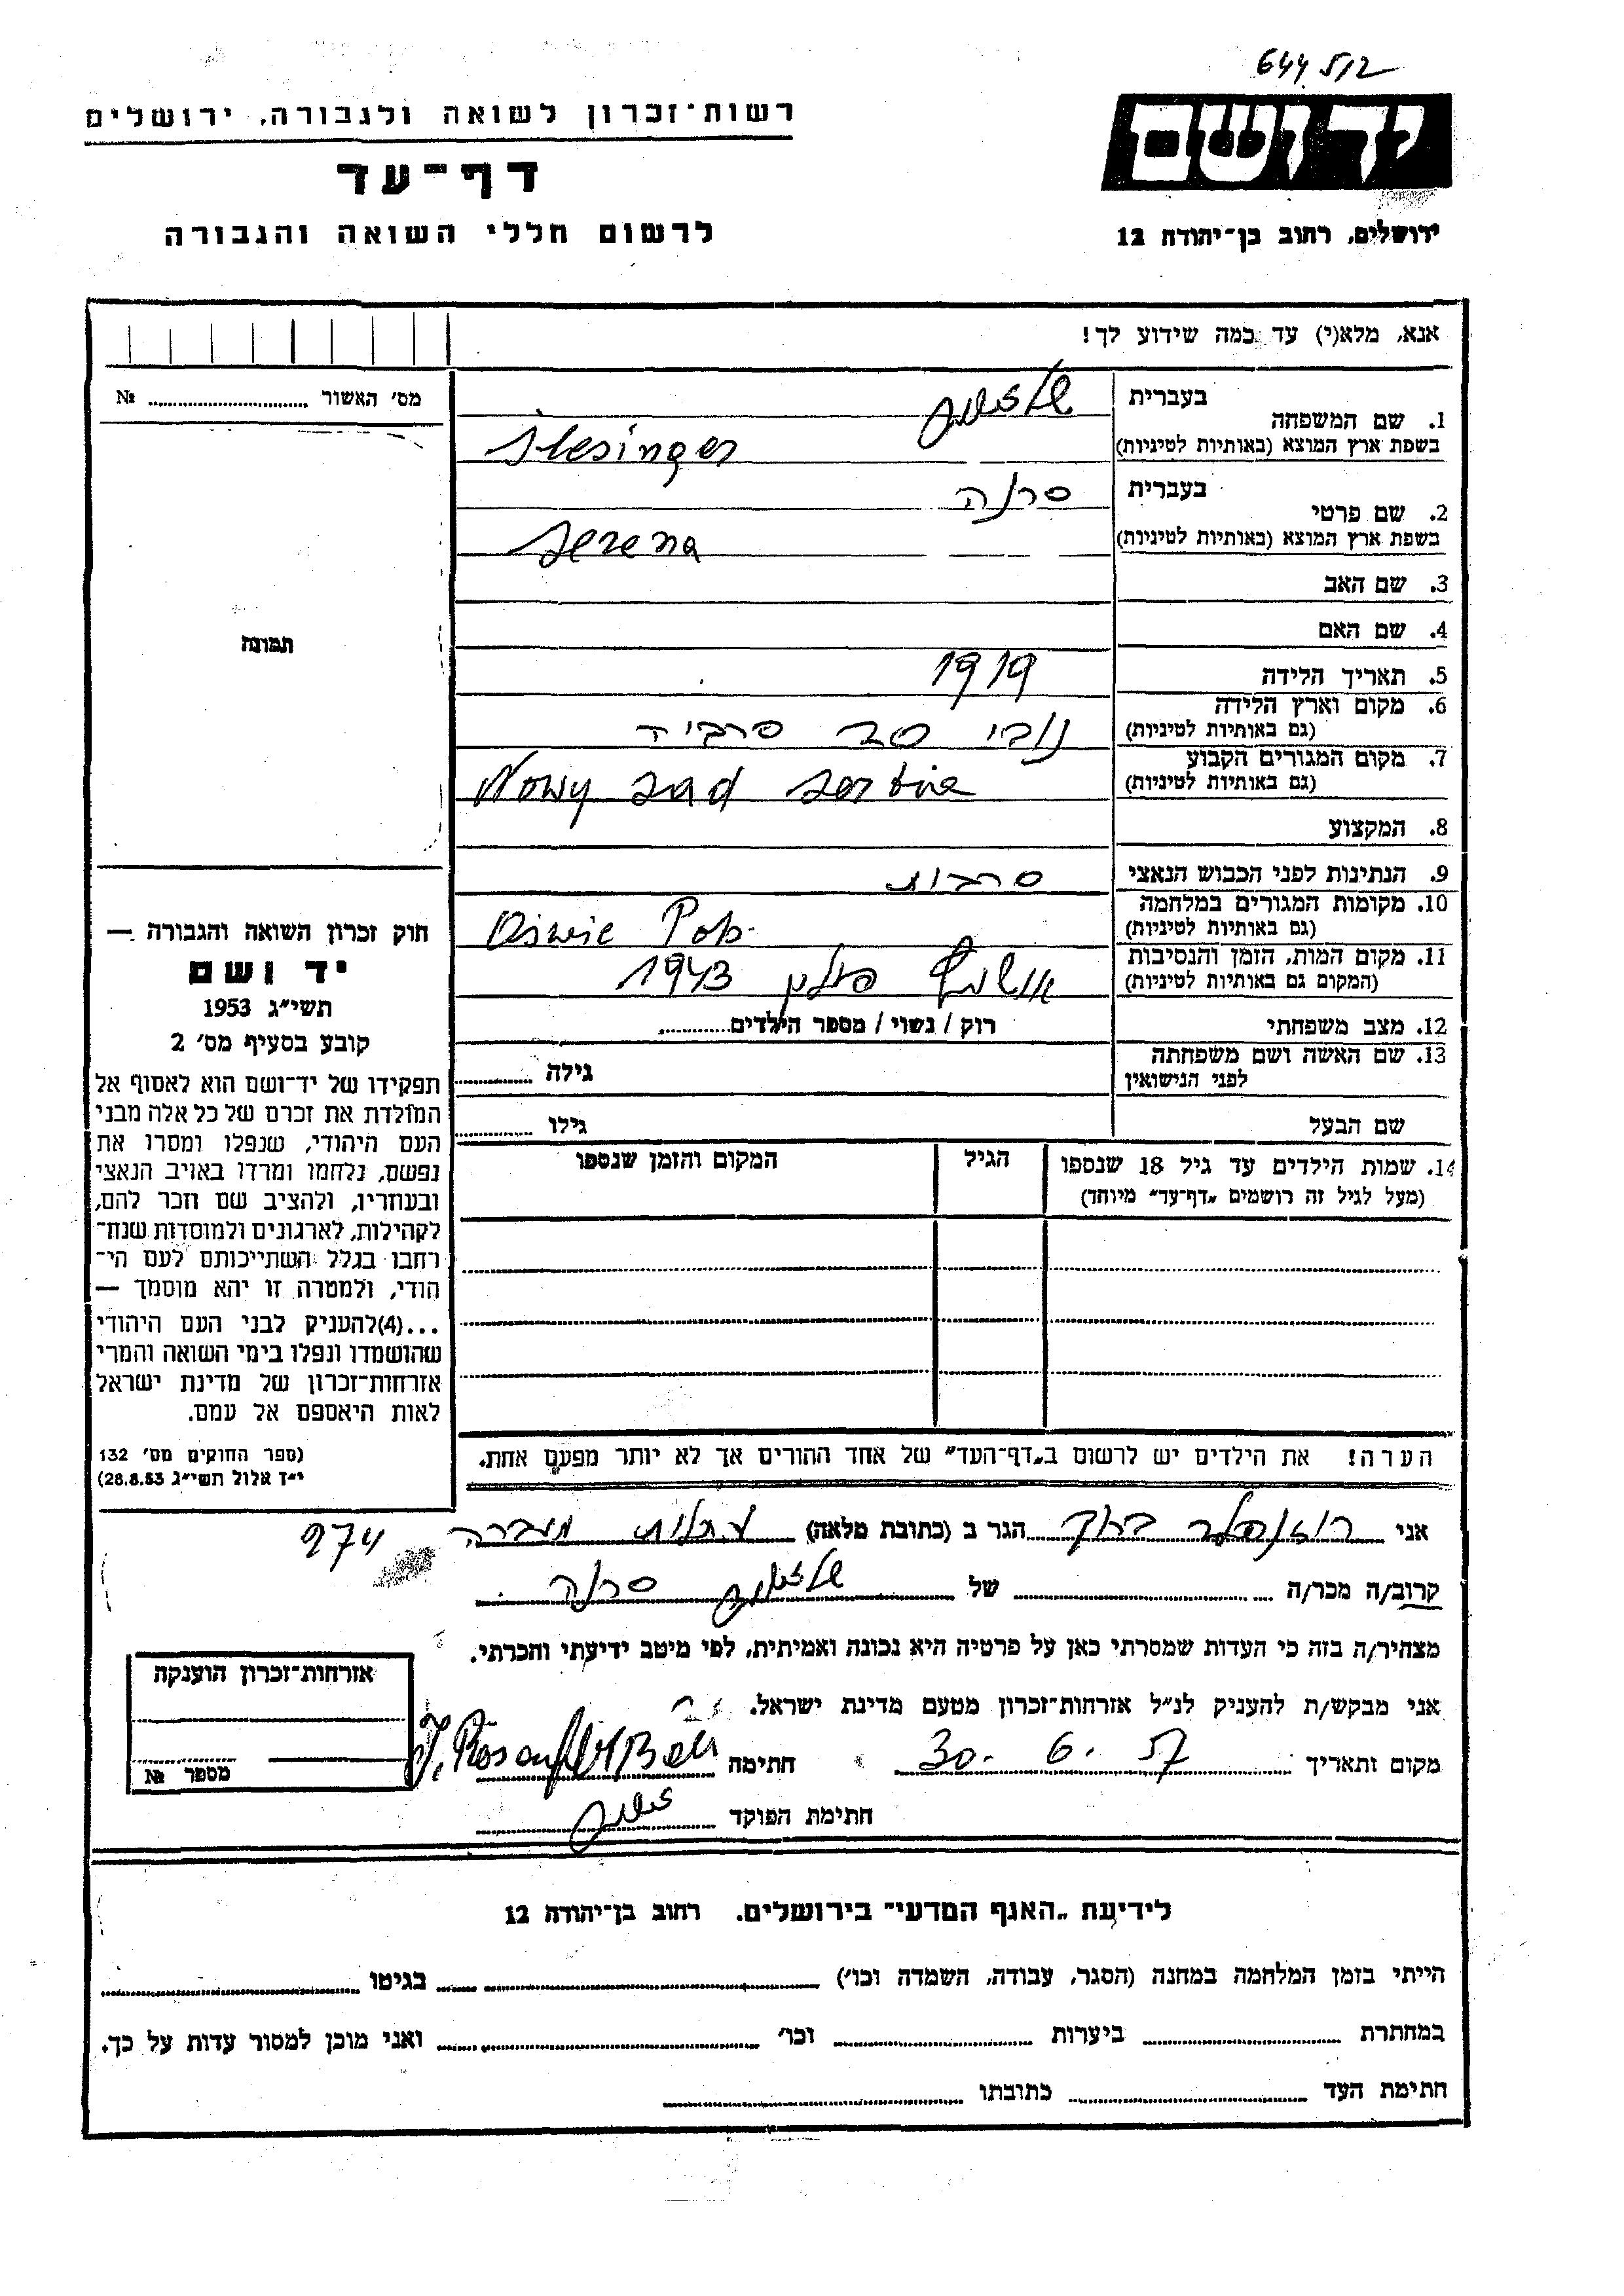 644512
רשות-זכרון לשואה ולגבורה, ירושלים
יד ושם
דף-עד
לרשום חללי השואה והגבורה
ירושלים, רחוב בן-יהודה 12
אנא, מלא(י) עד כמה שידוע לך!
מס' האשור № 
1. שם המשפחה
בעברית
בשפת ארץ המוצא (באותיות לטיניות) Slesinger
2. שם פרטי
בעברית סרנה
בשפת ארץ המוצא (באותיות לטיניות) Serena
3. שם האב
4. שם האם
5. תאריך הלידה 1919
6. מקום וארץ הלידה
(גם באותיות לטיניות) נובי סד סרביה
7. מקום המגורים הקבוע
(גם באותיות לטיניות) Nowy Sad Serbie
8. המקצוע
9. הנתינות לפני הכבוש הנאצי סרבית
10. מקומות המגורים במלחמה
(גם באותיות לטיניות)
11. מקום המות, הזמן והנסיבות
(המקום גם באותיות לטיניות) פולין 1943
12. מצב משפחתי רוק / נשוי / מספר הילדים
13. שם האשה ושם משפחתה
לפני הנישואין גילה
שם הבעל גילו
14. שמות הילדים עד גיל 18 שנספו
(מעל לגיל זה רושמים "דף-עד" מיוחד)
הגיל
המקום והזמן שנספו
תמונה
חוק זכרון השואה והגבורה —
יד ושם
תשי"ג 1953
קובע בסעיף מס' 2
תפקידו של יד-ושם הוא לאסוף אל
המולדת את זכרם של כל אלה מבני
העם היהודי, שנפלו ומסרו את
נפשם, נלחמו ומרדו באויב הנאצי
ובעוזריו, ולהציב שם וזכר להם,
לקהילות, לארגונים ולמוסדות שנח-
רבו בגלל השתייכותם לעם הי-
הודי, ולמטרה זו יהא מוסמך —
...(4)להעניק לבני העם היהודי
שהושמדו ונפלו בימי השואה והמרי
אזרחות-זכרון של מדינת ישראל
לאות היאספם אל עמם.
(ספר החוקים מס' 132
י"ד אלול תשי"ג 28.8.53)
הערה! את הילדים יש לרשום ב"דף-העד" של אחד ההורים אך לא יותר מפעם אחת.
אני הגר ב (כתובת מלאה) עתלית מעברה 974
קרוב/ה מכר/ה של סרנה
מצהיר/ה בזה כי העדות שמסרתי כאן על פרטיה היא נכונה ואמיתית, לפי מיטב ידיעתי והכרתי.
אני מבקש/ת להעניק לנ"ל אזרחות-זכרון מטעם מדינת ישראל.
מקום ותאריך 30. 6. 57 חתימה
חתימת הפוקד
אזרחות-זכרון הוענקה
מספר №
לידיעת "האגף המדעי" בירושלים. רחוב בן-יהודה 12
הייתי בזמן המלחמה במחנה (הסגר, עבודה, השמדה וכו') בגיטו
במחתרת ביערות וכו' ואני מוכן למסור עדות על כך.
חתימת העד כתובתו